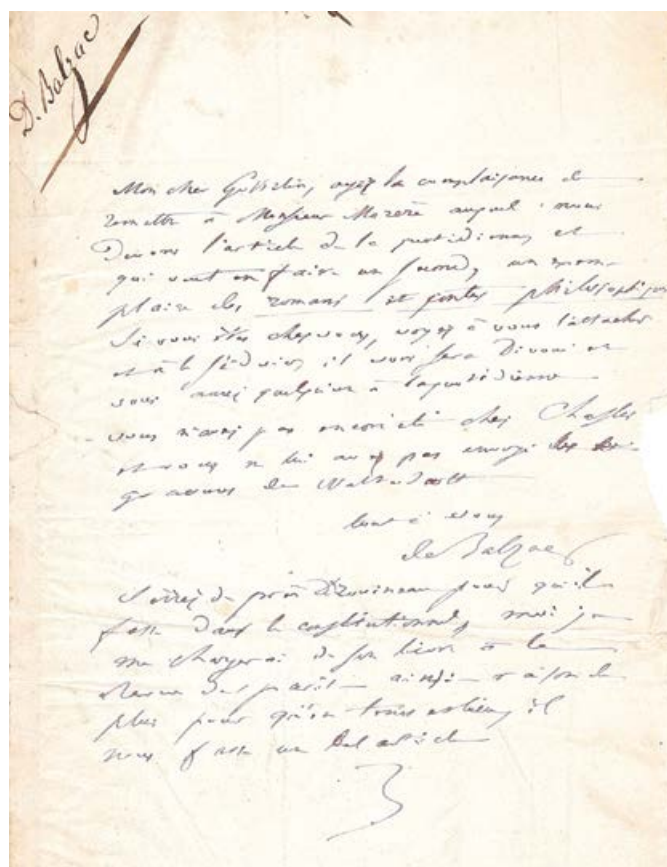 D. Balzac
Mon cher Gosselin, ayez la complaisance de
remettre à Monsieur Mazère auquel nous
devons l'article de la quotidienne et
qui veut en faire un second, un exem-
plaire des romans et contes philosophiques
Si vous êtes chez vous, voyez à vous l'attacher
et à le séduire, il vous sera dévoué et
vous aurez quelqu'un à la quotidienne
vous n'avez pas encore été chez Chasles
et vous ne lui avez pas envoyé les
de Walter Scott
tout à vous
de Balzac
Serrez de près Drouineau pour qu'il
fasse dans le constitutionnel, moi je
me chargerai de son livre à la
revue de paris ainsi raison de
plus pour qu'en trois actions, il
nous fasse un bel article